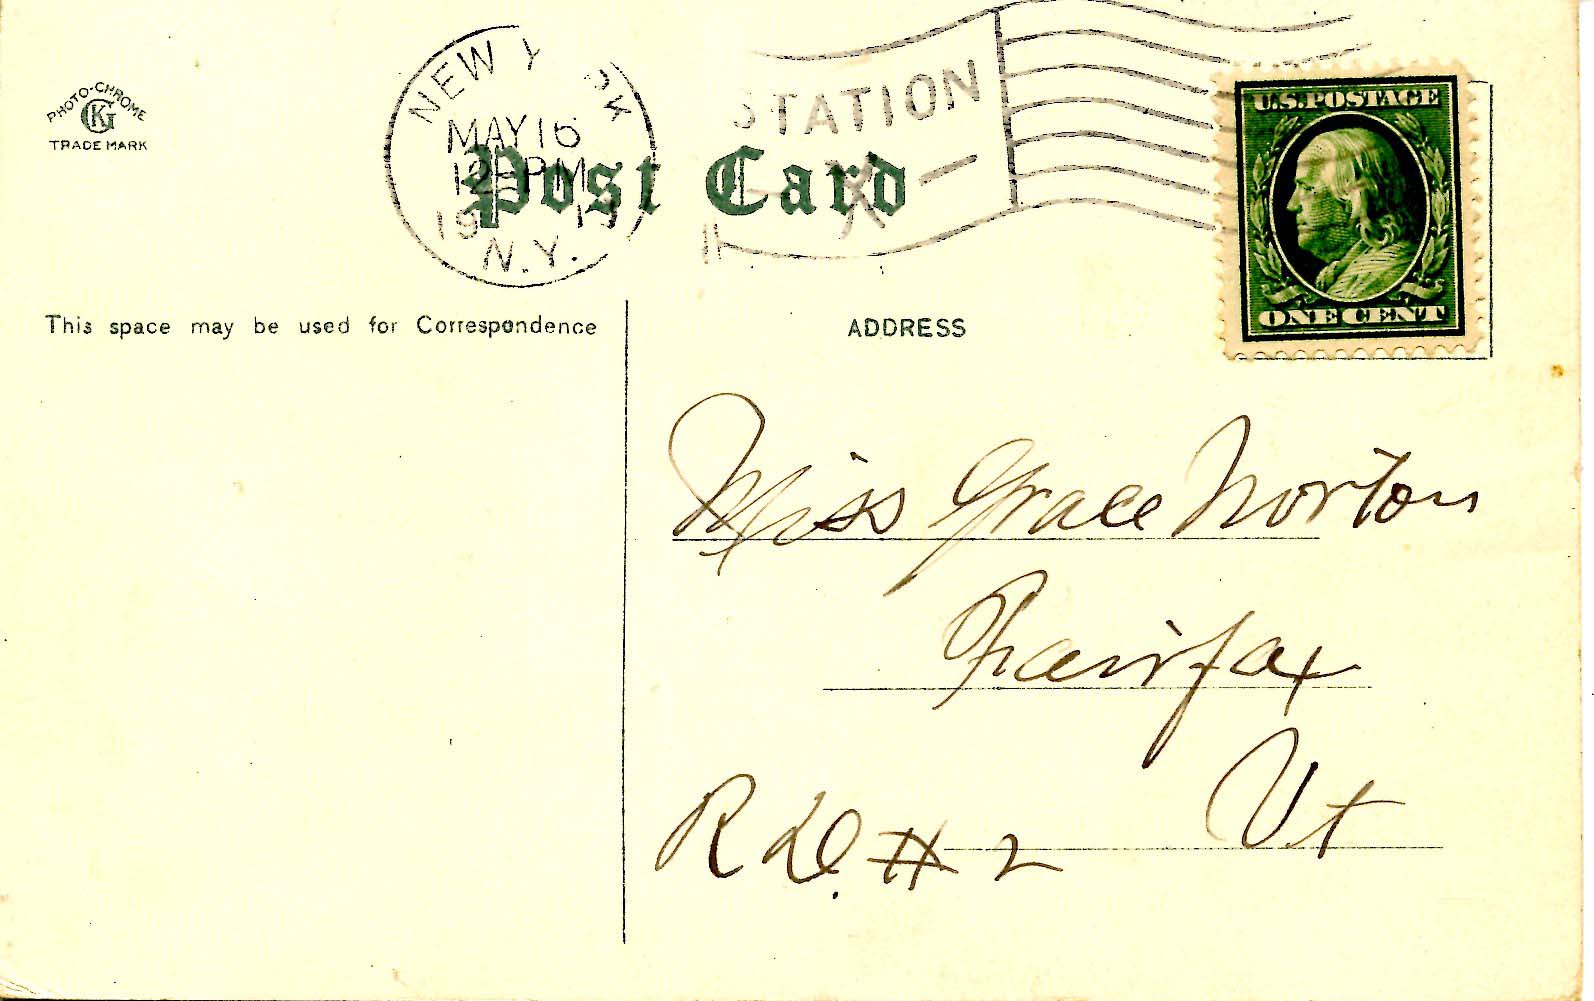 PHOTO-CHROME
GK
TRADE MARK
NEW Y RK
MAY 16
PM
19
N.Y.
STATION
U.S. POSTAGE
ONE CENT
Post Card
This space may be used for Correspondence
ADDRESS
Miss Grace Norton
Fairfax
Vt
R.D. # 2